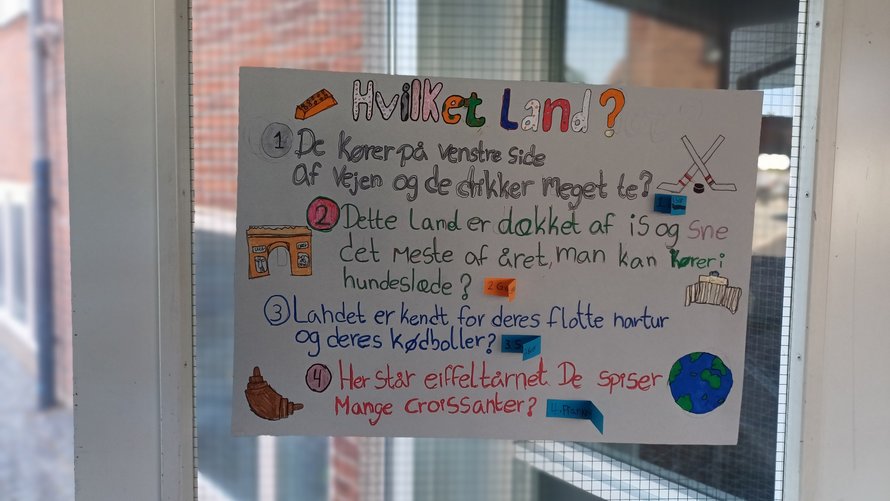 Hvilket Land?
1 De kører på venstre side
af vejen og de drikker meget te?
2 Dette land er dækket af is og sne
det meste af året, man kan kører i
hundeslæde?
3 Landet er kendt for deres flotte nartur
og deres kødboller?
4 Her står eiffeltårnet De spiser
Mange croissanter?